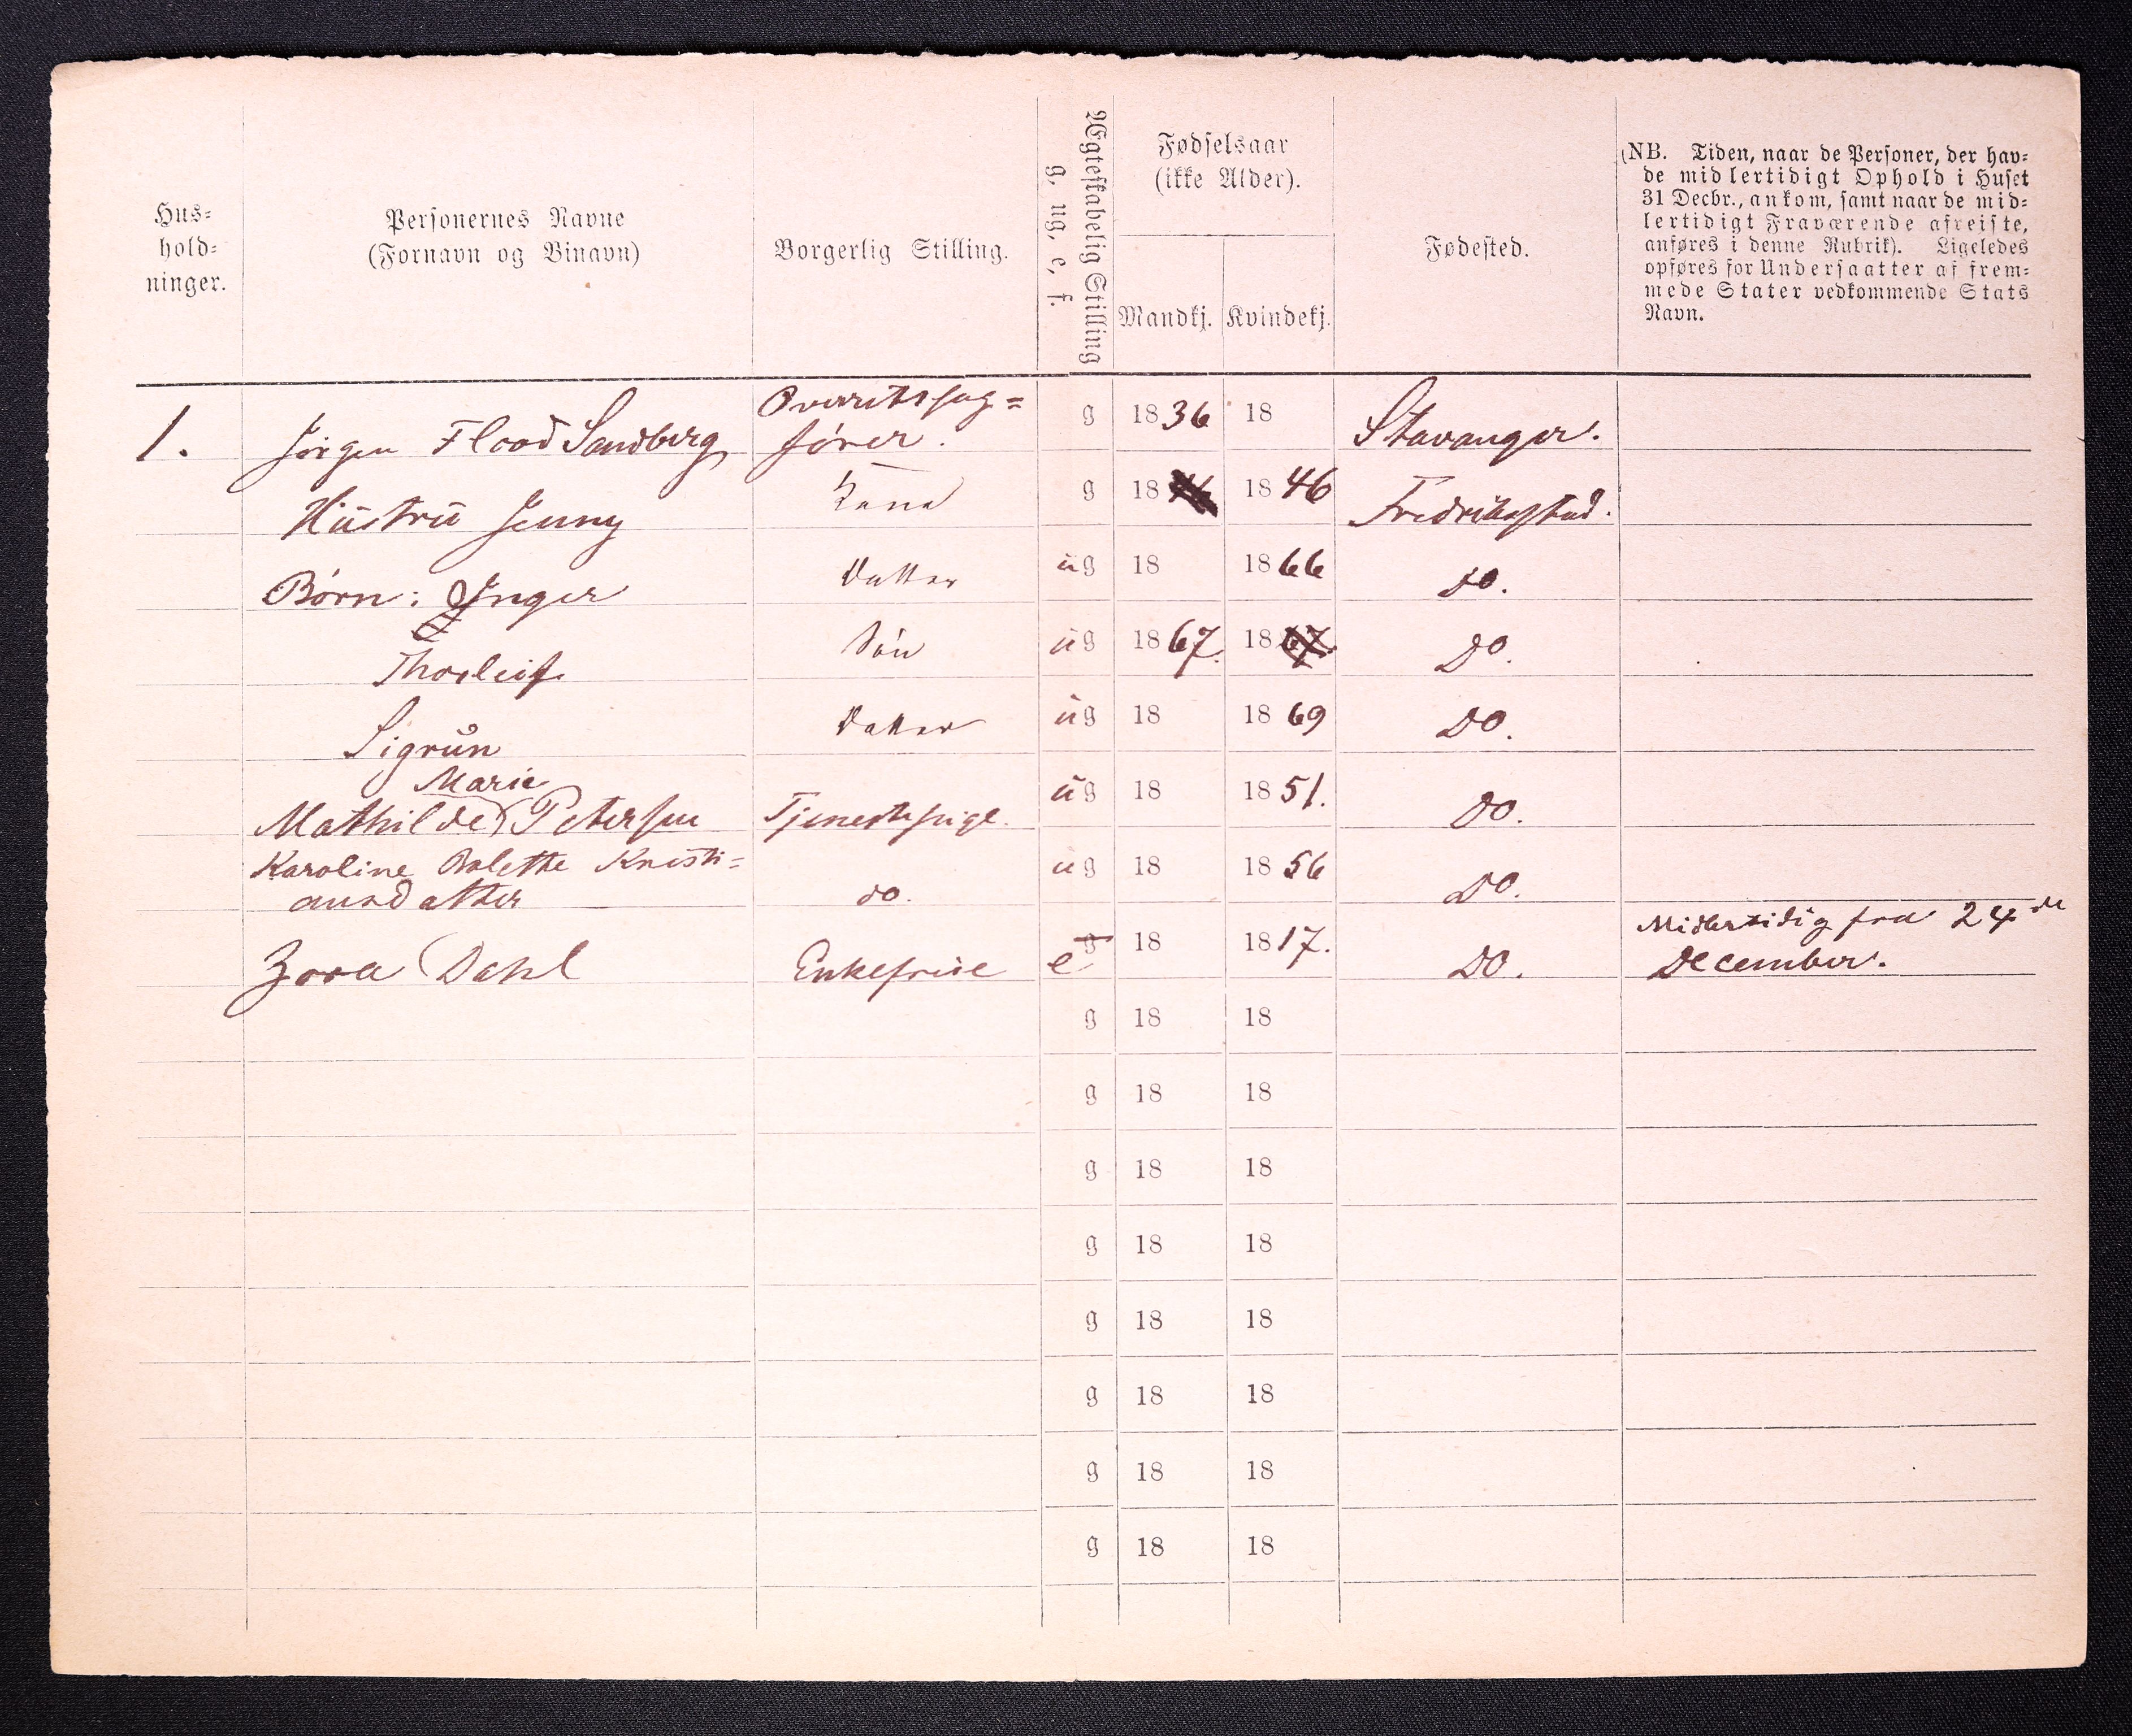 Hus=
hold=
ninger.
Personernes Navne
(Fornavn og Binavn)
Borgerlig Stilling.
Ægteskabelig Stilling
g, ug, e, f.
Fødselsaar
(ikke Alder).
Mandkj. Kvindekj.
Fødested.
(NB. Tiden, naar de Personer, der hav=
de midlertidigt Ophold i Huset
31 Decbr., ankom, samt naar de mid=
lertidigt Fraværende afreiste,
anføres i denne Rubrik). Ligeledes
opføres for Undersaatter af frem=
mede Stater vedkommende Stats
Navn.
Overretssag=
1. Jörgen Flood Sandberg förer. g 1836 18 Stavanger.
Hüstrü Jenny Kone g 18 1846 Fredrikstad.
Börn: Inger Datter ug 18 1866 do.
Thorleif Sön ug 1867. 1867. Do.
Sigrün Datter ug 18 1869 Do.
Marie
Mathilde Petersen Tjenestepige ug 18 1851. Do.
Karoline Bolette Kristi=
ansdatter do. ug 18 1856 Do.
Zora Dahl Enkefrue e g 18 1817. Do. Midlertidig fra 24de
December.
g 18 18
g 18 18
g 18 18
g 18 18
g 18 18
g 18 18
g 18 18
g 18 18